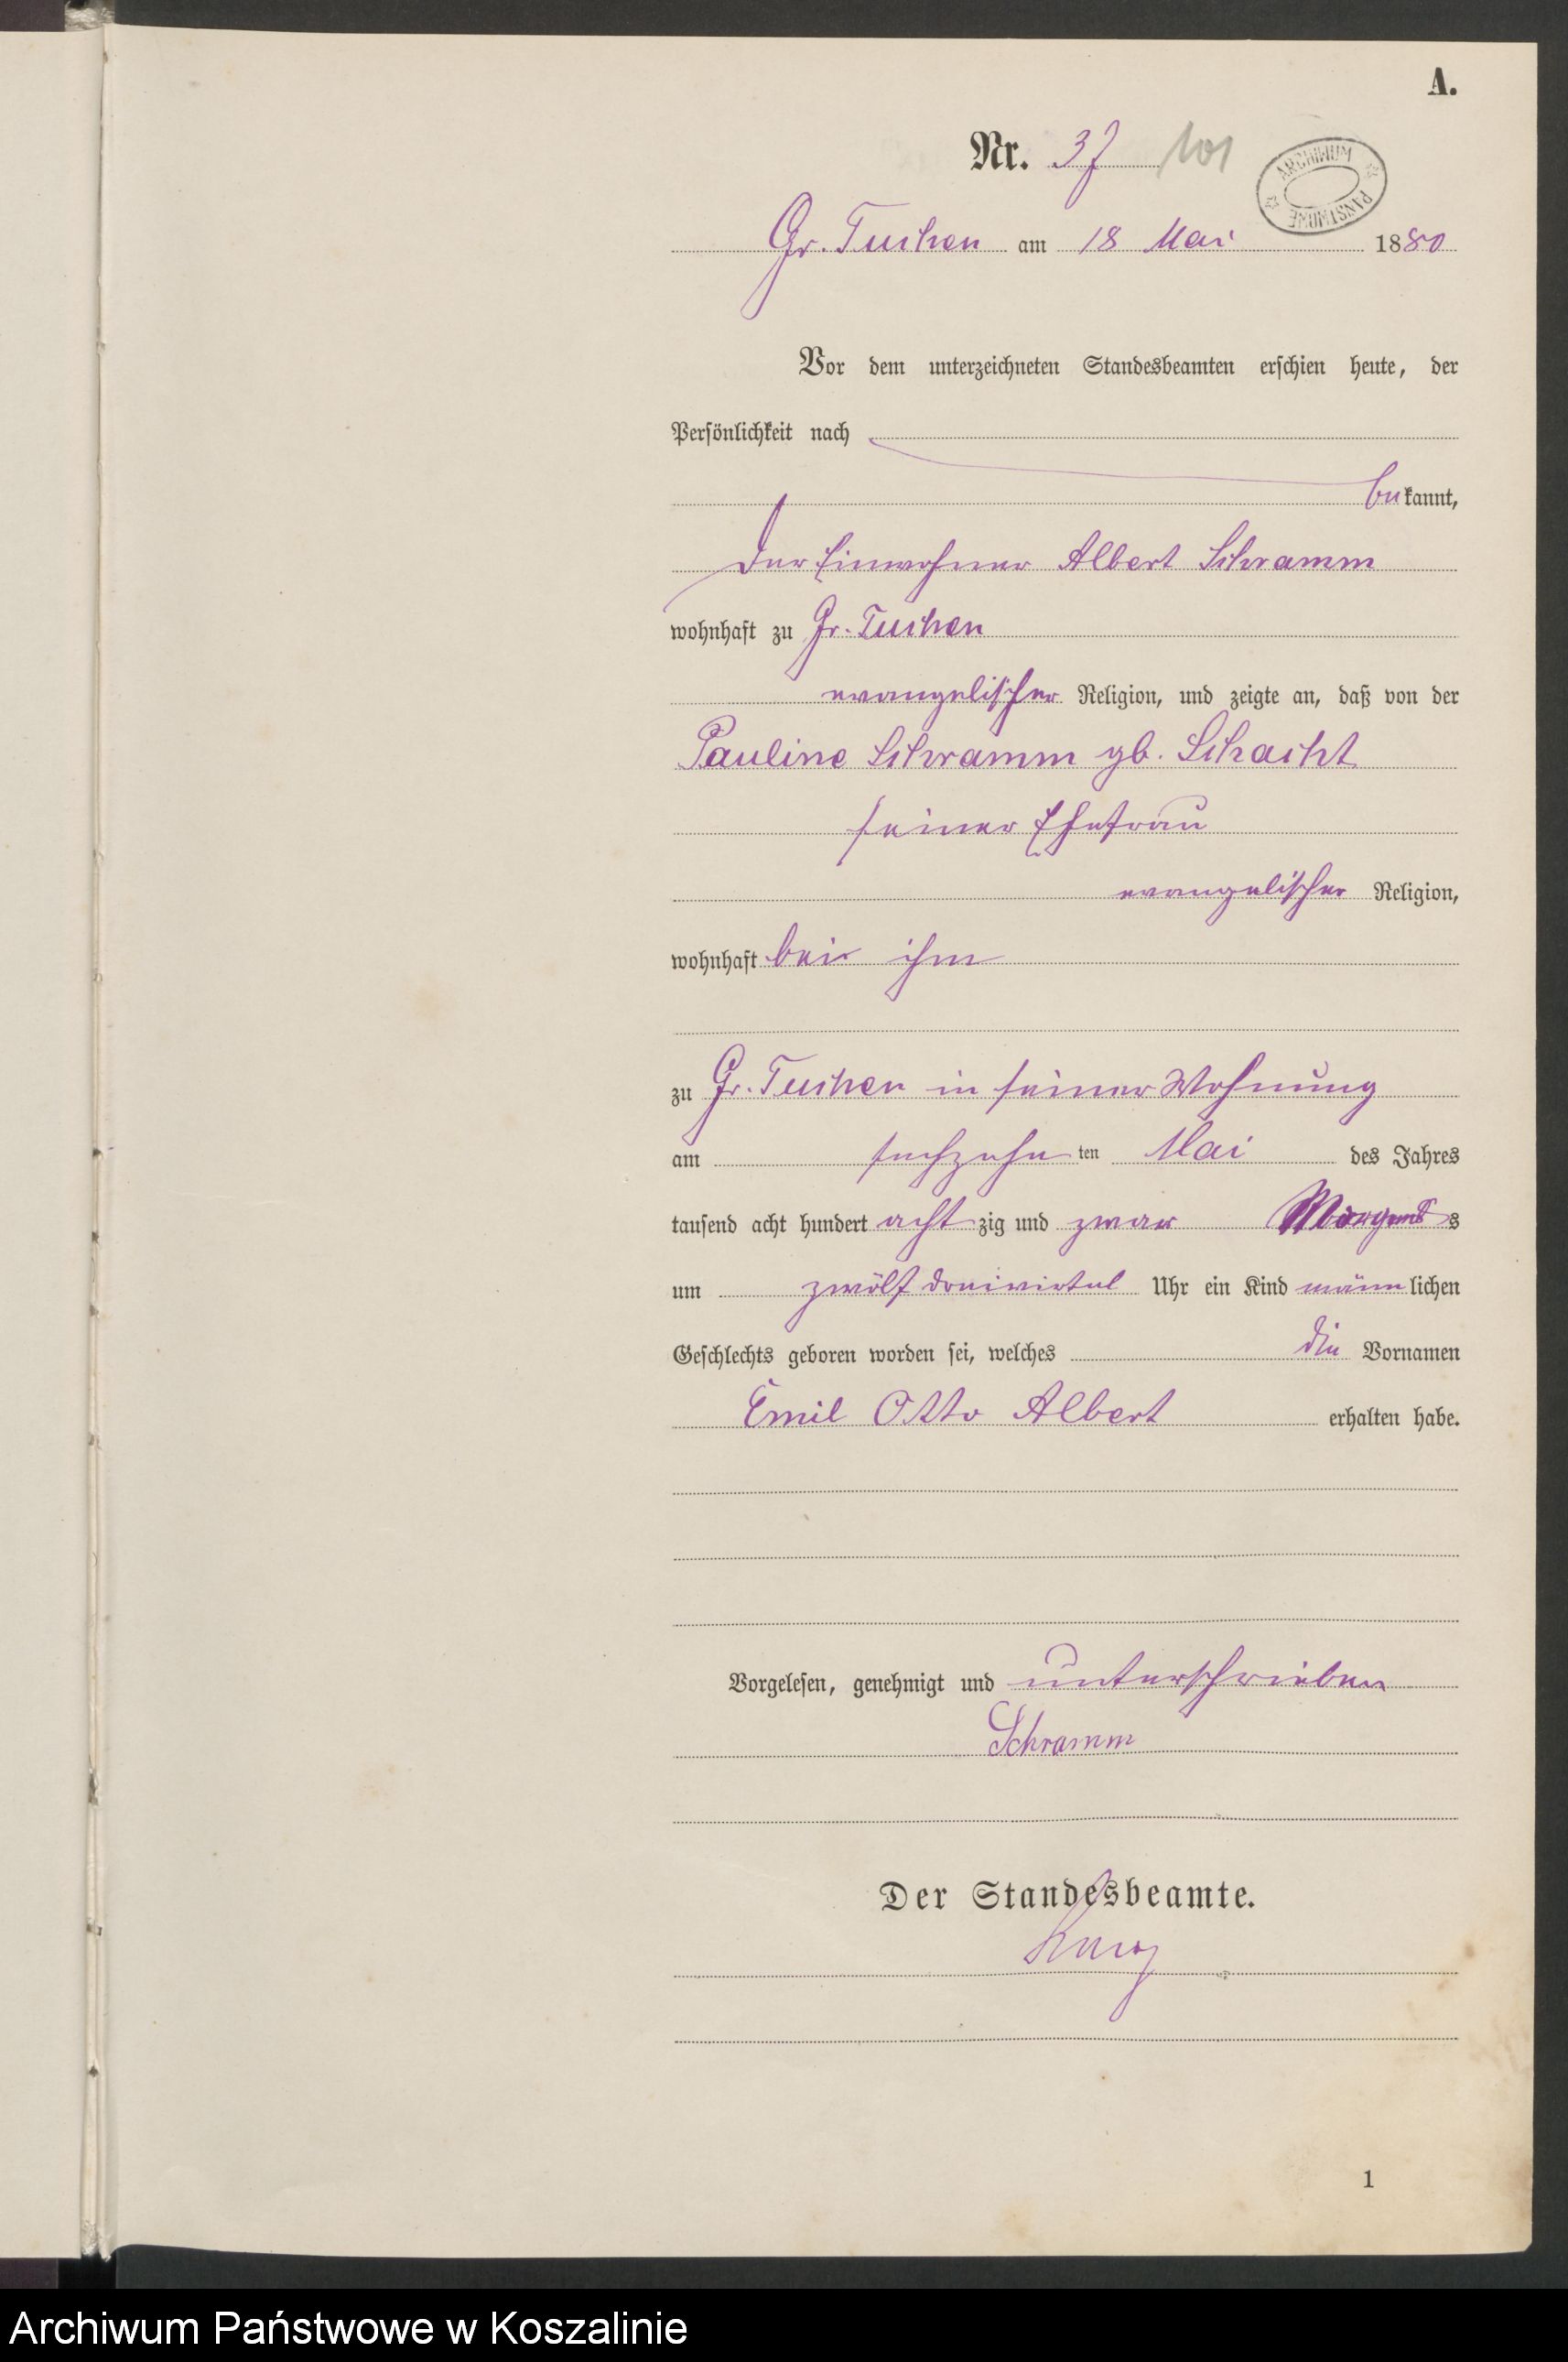 A.
Nr. 37 101
ARCHIWUM PAŃSTWOWE
Gr. Tuchen am 18 Mai 1880
Vor dem unterzeichneten Standesbeamten erschien heute, der
Persönlichkeit nach
bekannt,
der Einwohner Albert Schramm
wohnhaft zu Gr. Tuchen
evangelischer Religion, und zeigte an, daß von der
Pauline Schramm gb. Schacht
seiner Ehefrau
evangelischer Religion,
wohnhaft bei ihm
zu Gr. Tuchen in seiner Wohnung
am sechzehn ten Mai des Jahres
tausend acht hundert acht zig und zwar s
um zwölf dreiviertel Uhr ein Kind männlichen
Geschlechts geboren worden sei, welches die Vornamen
Emil Otto Albert erhalten habe.
Vorgelesen, genehmigt und unterschrieben
Schramm
Der Standesbeamte.
1
Archiwum Państwowe w Koszalinie